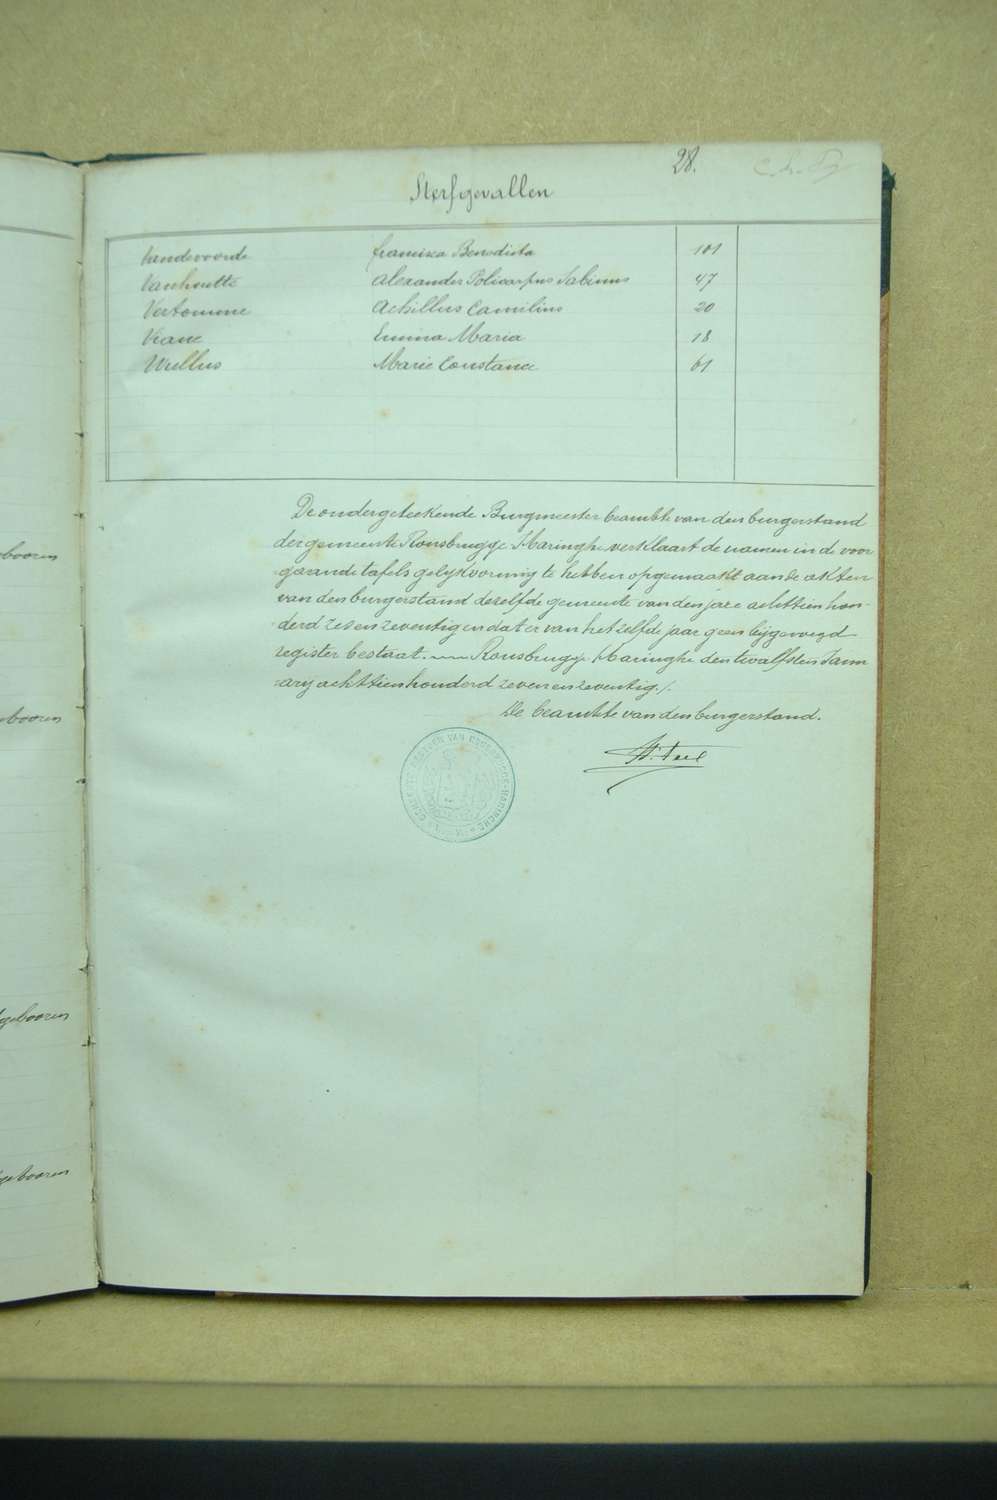 28.
Sterfgevallen
Vandevoorde Francisca Benedicta 101
Vanhoutte Alexander Policarpus Sabinus 47
Vertomme Achillus Camilius 20
Viane Emma Maria 18
Wullus Marie Constance 61
De ondergeteekende Burgmeester beambte van den burgerstand
der gemeente Rousbrugge Haringhe verklaart de namen in de voor
gaande tafels gelijkvormig te hebben opgemaakt aan de akten
van den burgerstand dezelfde gemeente van den jare achttien hon-
derd zes en zeventig en dat er van het zelfde jaar geen bijgevoegd
register bestaat. Rousbrugge Haringhe den twalfsten Janu
arij achttien honderd zeven en zeventig./.
De beambte van den burgerstand.
geboren
geboren
geboren
geboren